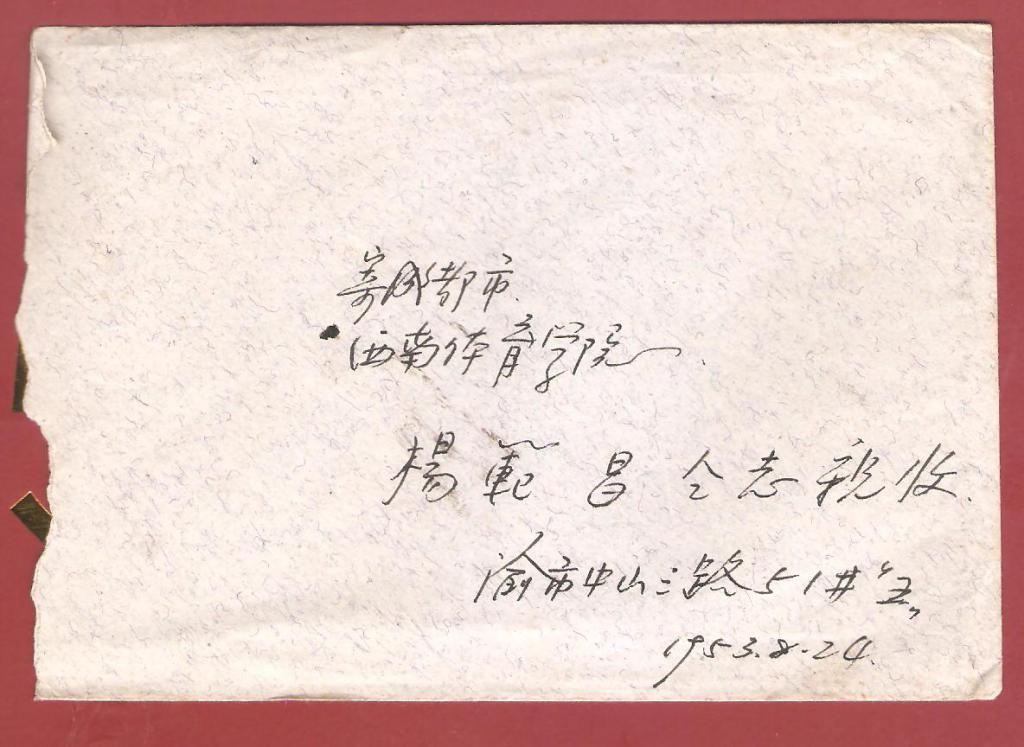 寄成都市
西南体育学院
楊範昌仝志親收
渝市中山三路51#
1953.8.24.